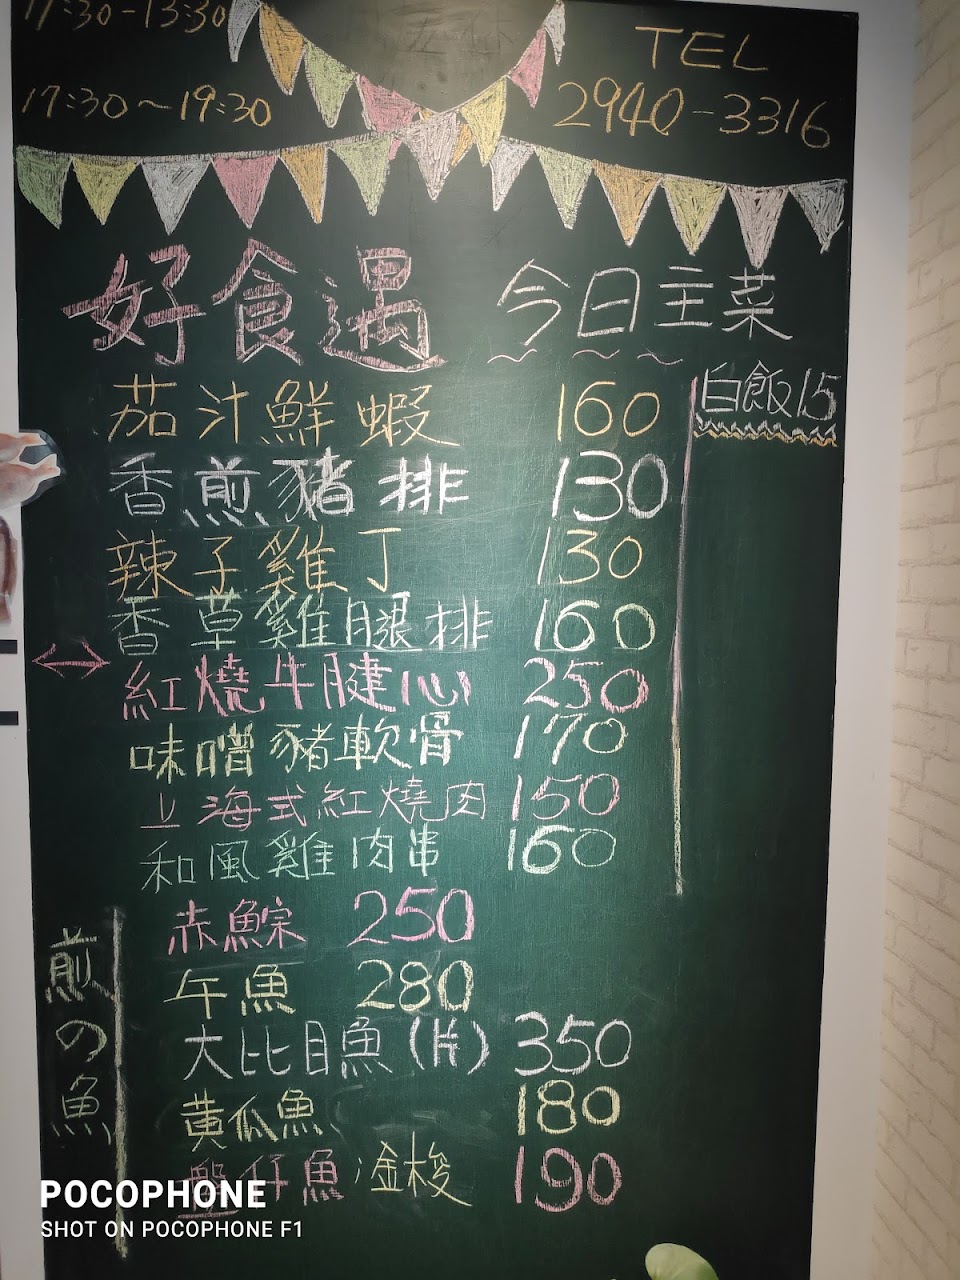 17:30-13:30
TEL
17:30~19:30
2940-3316
好食遇 今日主菜
茄汁鮮蝦 160
白飯15
香煎豬排 130
辣子雞丁 130
香草雞腿排 160
紅燒牛腱心 250
味噌豬軟骨 170
上海式紅燒肉 150
和風雞肉串 160
煎の魚
赤鯮 250
午魚 280
大比目魚(片) 350
黃瓜魚 180
仔魚 金梭 190
POCOPHONE
SHOT ON POCOPHONE F1